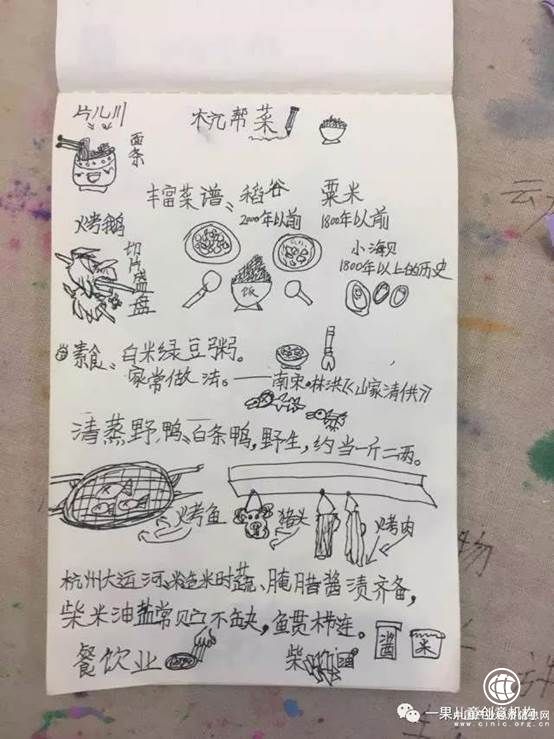 片儿川
杭帮菜
面条
丰富菜谱、稻谷 粟米
2000年以前 1800年以前
烤鹅
切片盛盘
小海贝
1800年以上的历史
饭
素食、白米绿豆粥。
家常做法。——南宋·林洪《山家清供》
清蒸野鸭、白条鸭，野生，约当一斤二两。
烤鱼
猪头
烤肉
杭州大运河、米时蔬、腌腊酱渍齐备，
柴米油盐常贝不缺，鱼贯栉连。
餐饮业
柴
酱
一果儿童创意机构
www.cinic.org.cn